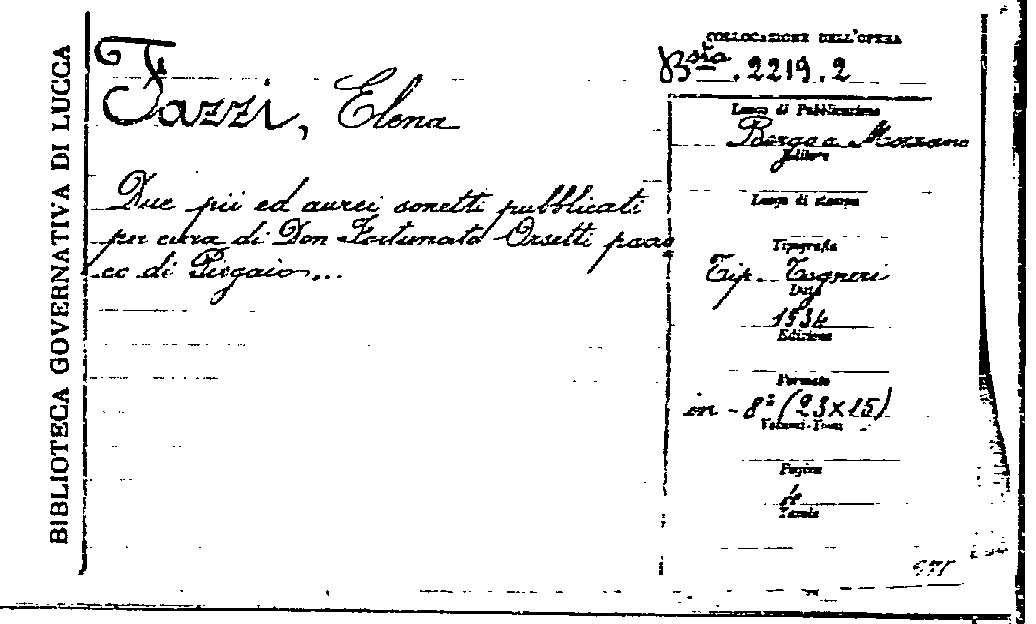 BIBLIOTECA GOVERNATIVA DI LUCCA
Fazzi, Elena
Due pii ed aurei sonetti pubblicati
per cura di Don Fortunato Orsetti parro
co di Piegaio...
COLLOCAZIONE DELL'OPERA
Bsta. 2219.2
Luogo di Pubblicazione
Borgo a Mozzano
Editore
Luogo di stampa
Tipografia
Tip. Togneri
Data
1934
Edizione
Formato
in - 8º (23x15)
Volumi-Tomi
Pagine
4
Tavole